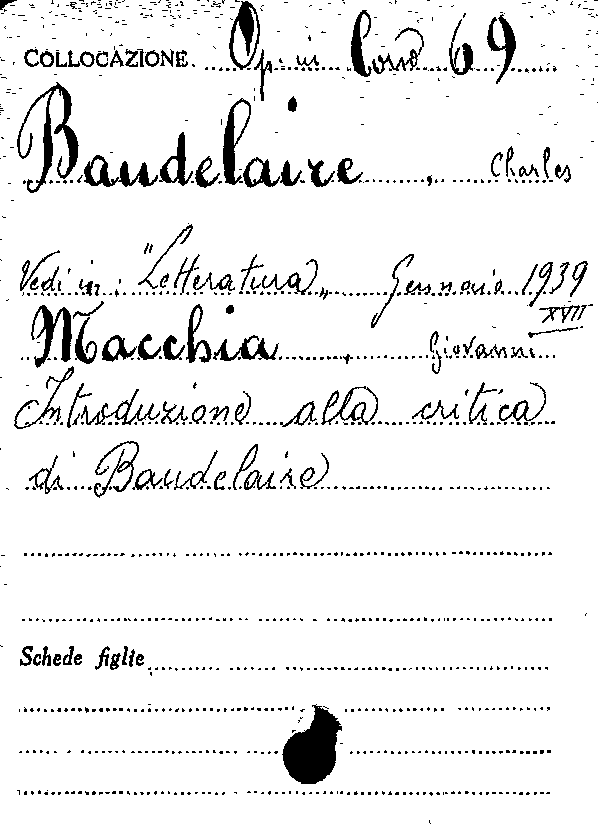 COLLOCAZIONE. Op. in Corso 69
Baudelaire, Charles
Vedi in: "Letteratura„ Gennaio 1939
XVII
Macchia, Giovanni
Introduzione alla critica
di Baudelaire
Schede figlie